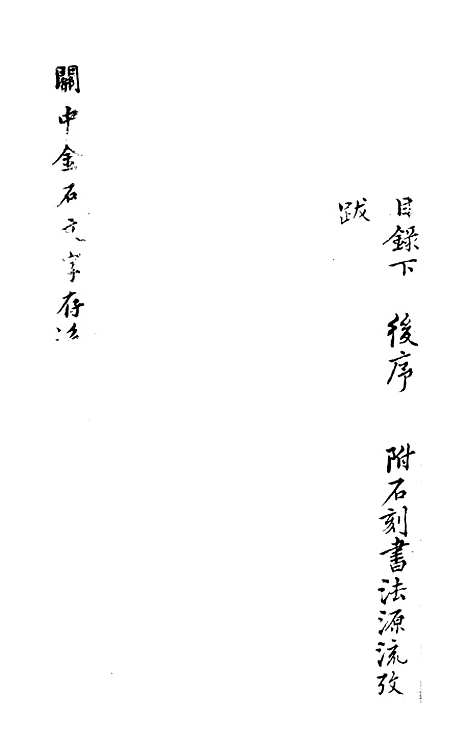 目錄下　後序　附石刻書法源流攷
跋
關中金石文字存